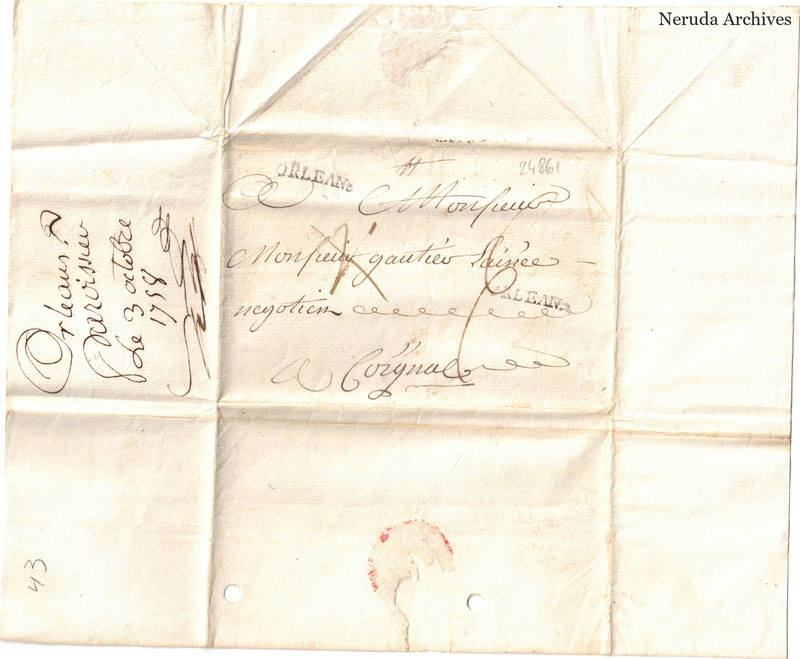 Neruda Archives
24861
ORLEANS
A Monsieur
Monsieur gautier Lainée
negotien
ORLEANS
a Coignac
Orleans
parvissier
Le 3 octobre
1758
43